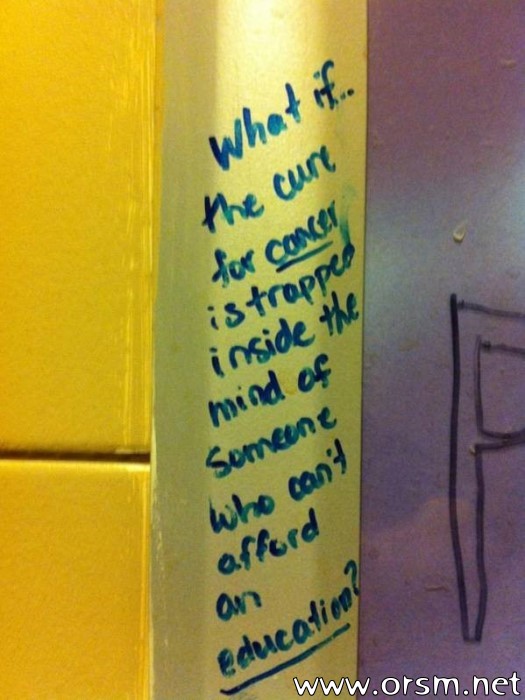 What if..
the cure
for cancer
is trapped
inside the
mind of
someone
who can't
afford
an
education?
P
www.orsm.net